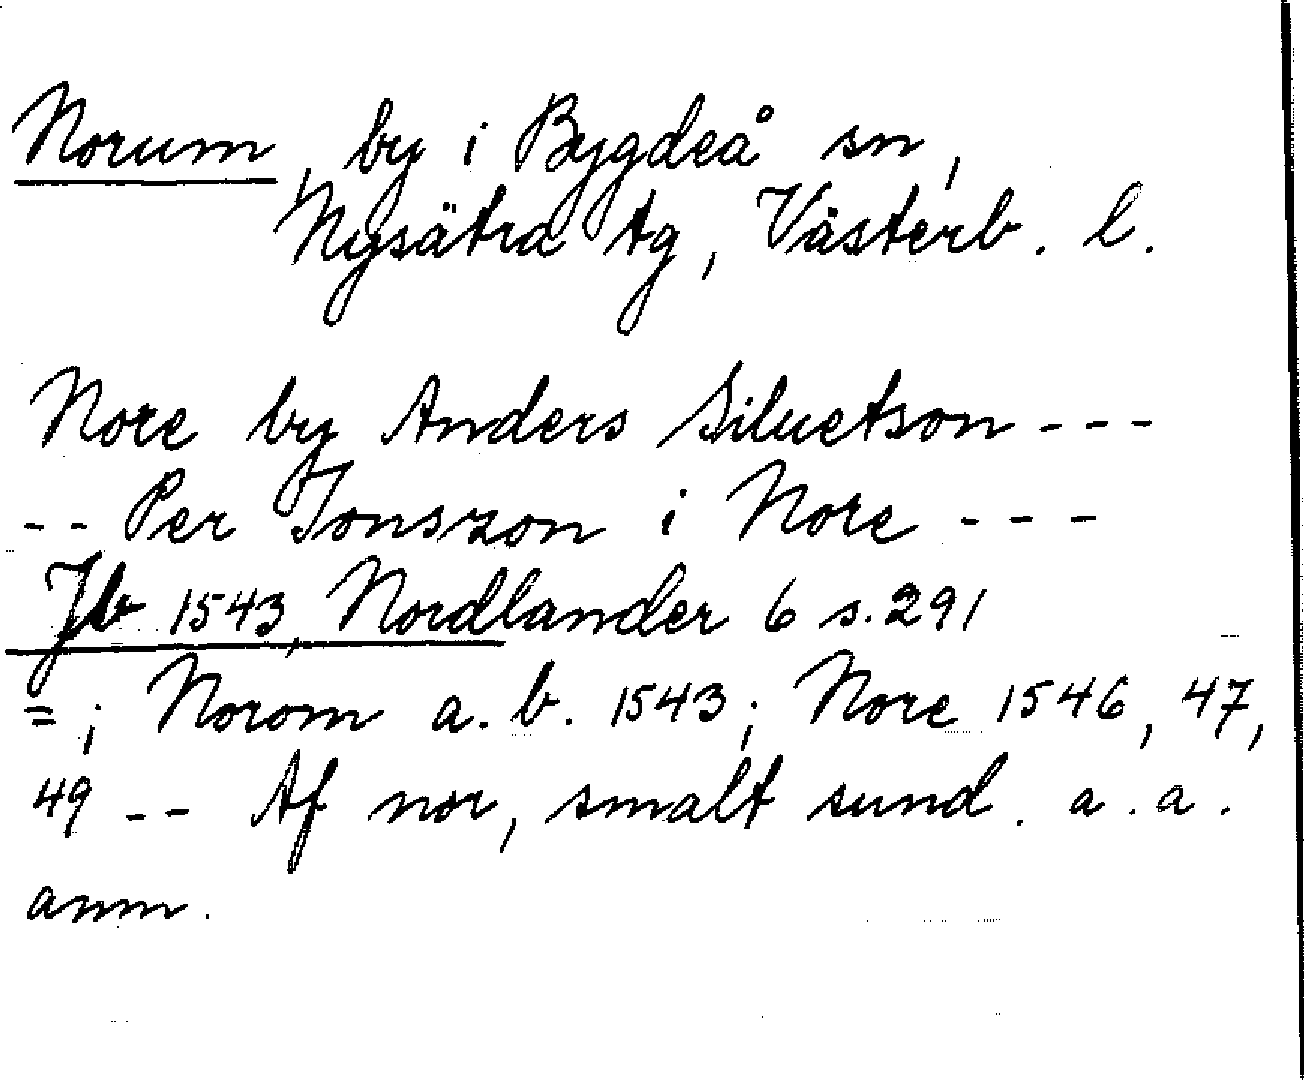 Norum, by i Bygdeå sn,
Nysätra tg, Västerb. l.
Nore by Anders Siluetson ---
-- Per Jonszon i Nore ---
Jb 1543, Nordlander 6 s. 291
= ; Norom a. b. 1543; Nore 1546, 47,
49 -- Af nor, smalt sund. a. a.
anm.